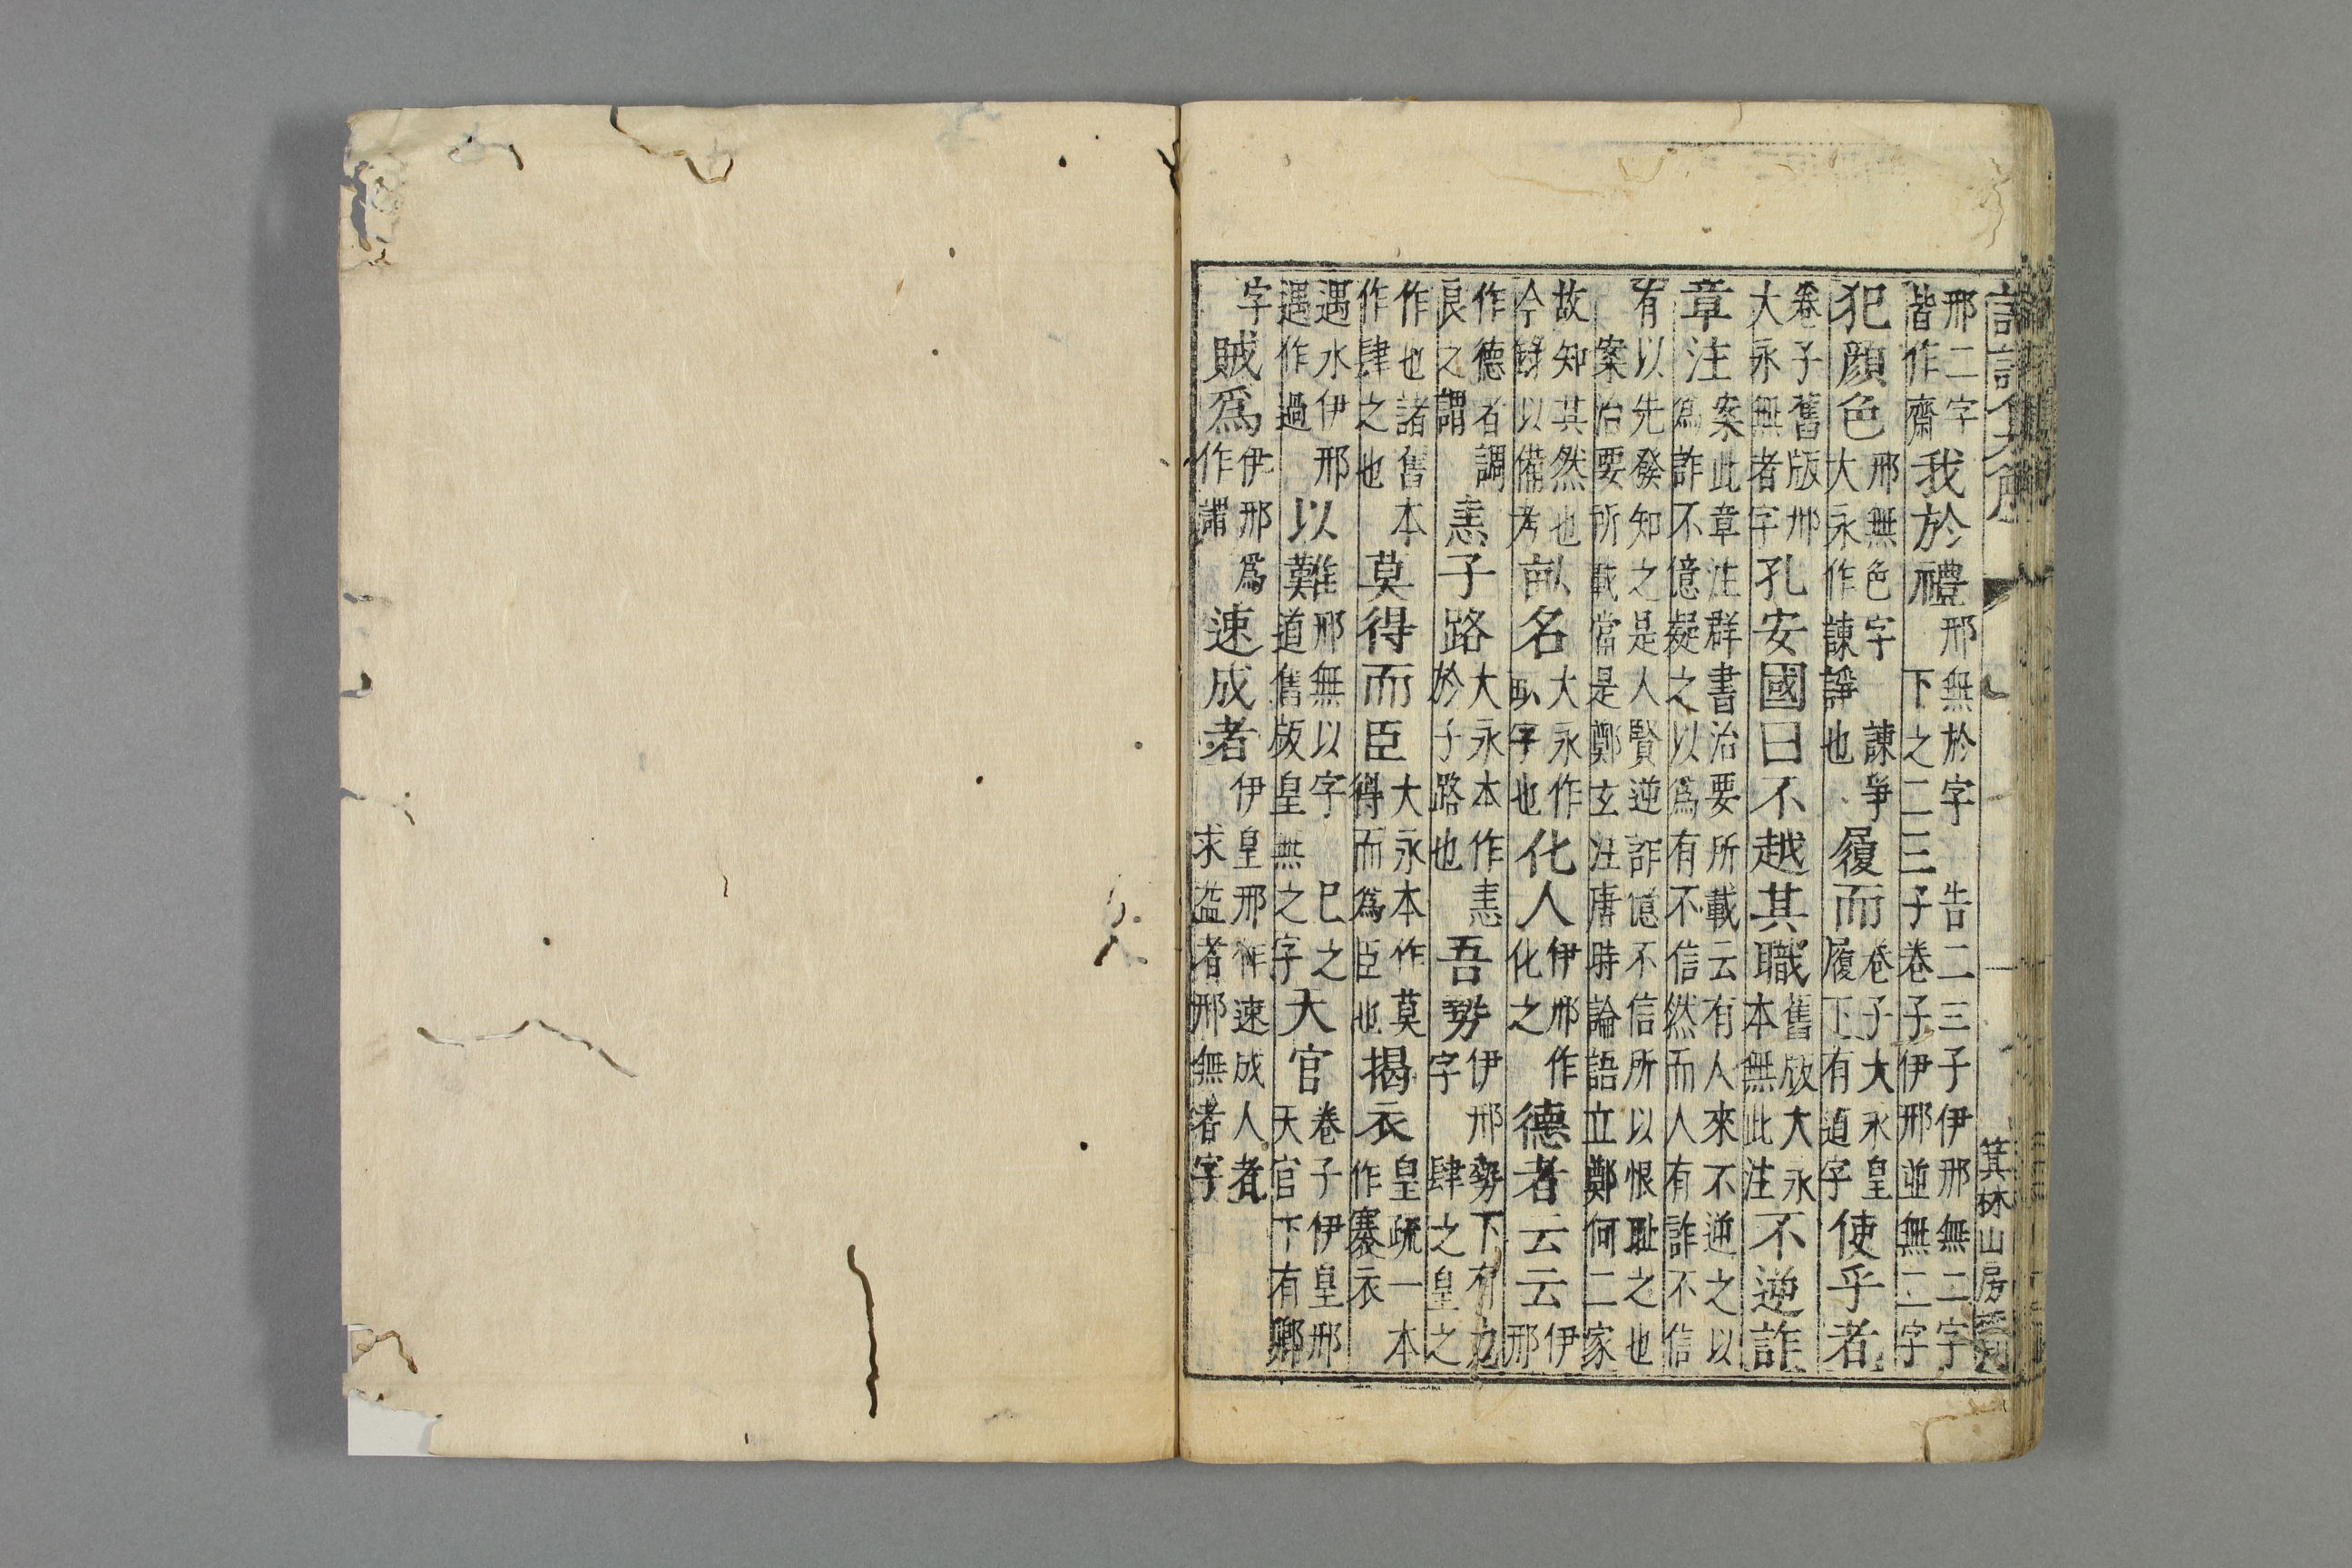 邢二字
皆作齋
我於禮
邢無於字
下之二三
告二三子伊邢無二字
子卷子伊邢並無二字
犯顏色
邢無色字
大永作諫諍
諫爭
也
履而
卷子大永皇
履下有道字
使乎者
卷子舊版邢
大永無者字
孔安國曰不越其職
舊版大永
本無此注
不逆詐
章注
案此章注群書治要所載云有人來不逆之以
爲詐不億疑之以爲有不信然而人有詐不信
有以先發知之是人賢逆詐億不信所以恨耻之也
案治要所載當是鄭玄注唐時論語立鄭何二家
故知其然也
今錄以備考
畝名
大永作
字也
化人
伊邢作
化之
德者云云
伊邢
作德者謂
良之謂
恚子路
大永本作恚
於子路也
吾勢
伊邢勢下有力
字
肆之皇之
作也諸舊本
作肆之也
莫得而臣
大永本作莫
得而爲臣也
揭衣
皇疏一本
作褰衣
遇水伊邢
遇作過
以難
邢無以字
道舊版皇無
巳之
之字
大官
卷子伊皇邢
天官下有卿
字
賊爲
伊邢爲
作謂
速成者
伊皇邢作速成人者
求益者邢無者字
箕林山房